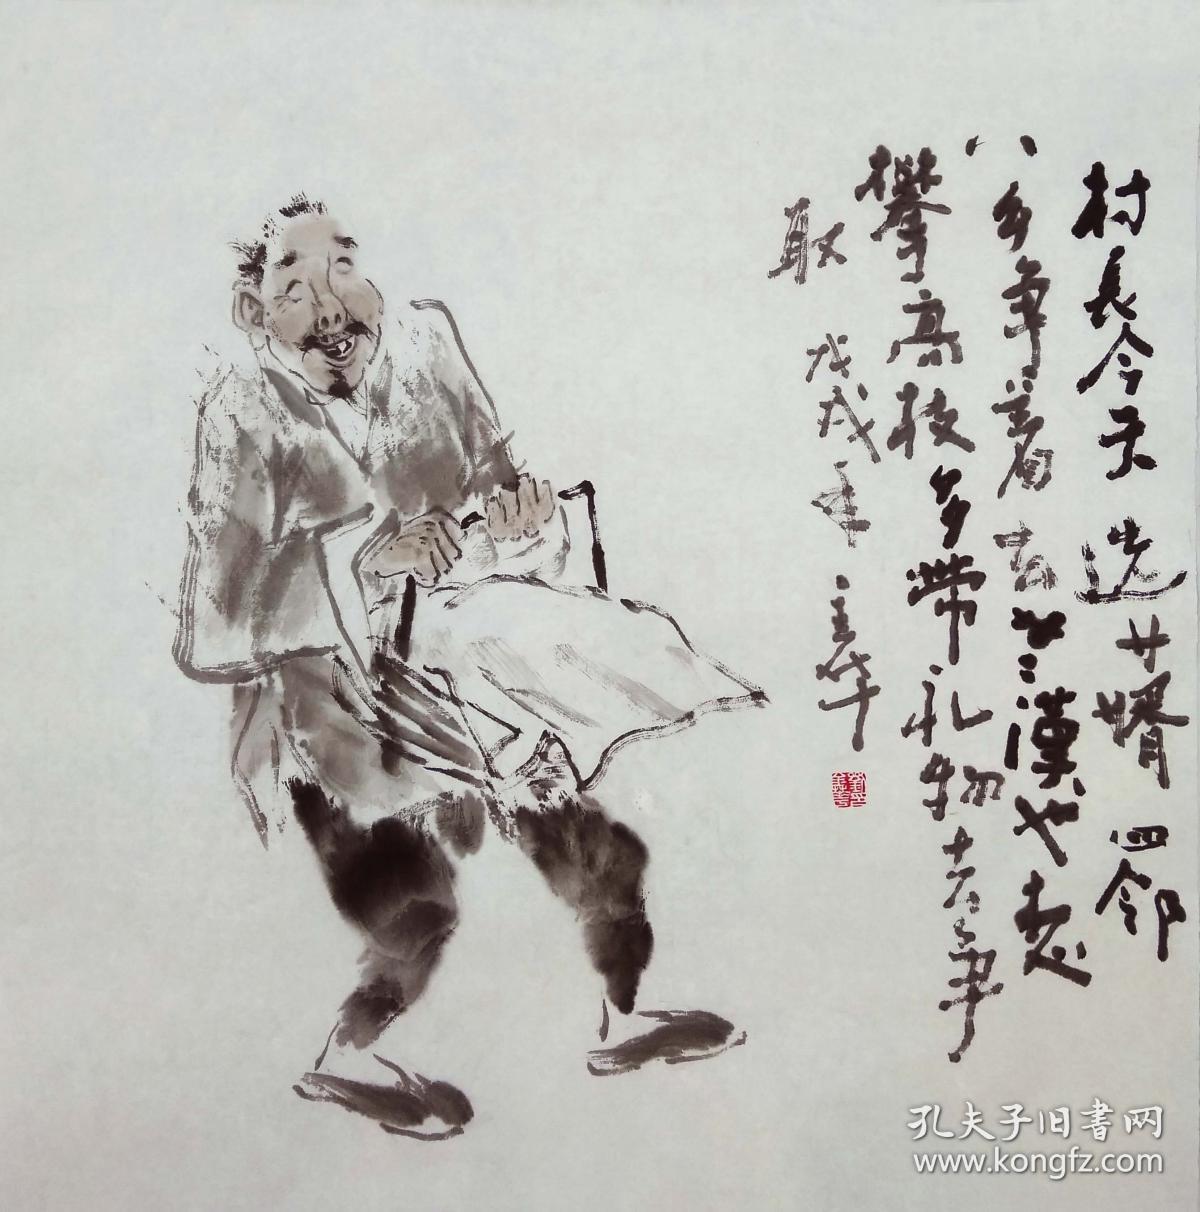 村长今天选女婿四邻
八乡争着去老漢也想
攀高枝多带礼物去争
取 戊戌年
孔夫子旧书网
www.kongfz.com